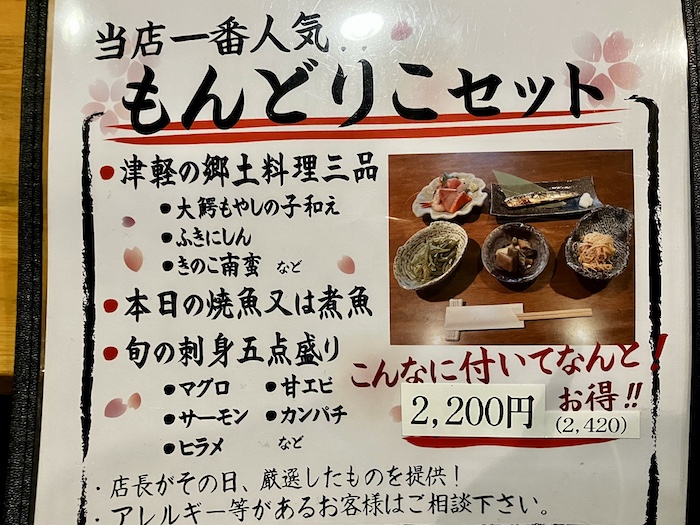 当店一番人気..
もんどりこセット
●津軽の郷土料理三品
●大鰐もやしの子和え
●ふきにしん
●きのこ南蛮 など
●本日の焼魚又は煮魚
●旬の刺身五点盛り
●マグロ ●甘エビ
●サーモン ●カンパチ
●ヒラメ など
こんなに付いてなんと!
2,200円
お得!!
(2,420)
・店長がその日、厳選したものを提供!
・アレルギー等があるお客様はご相談下さい。